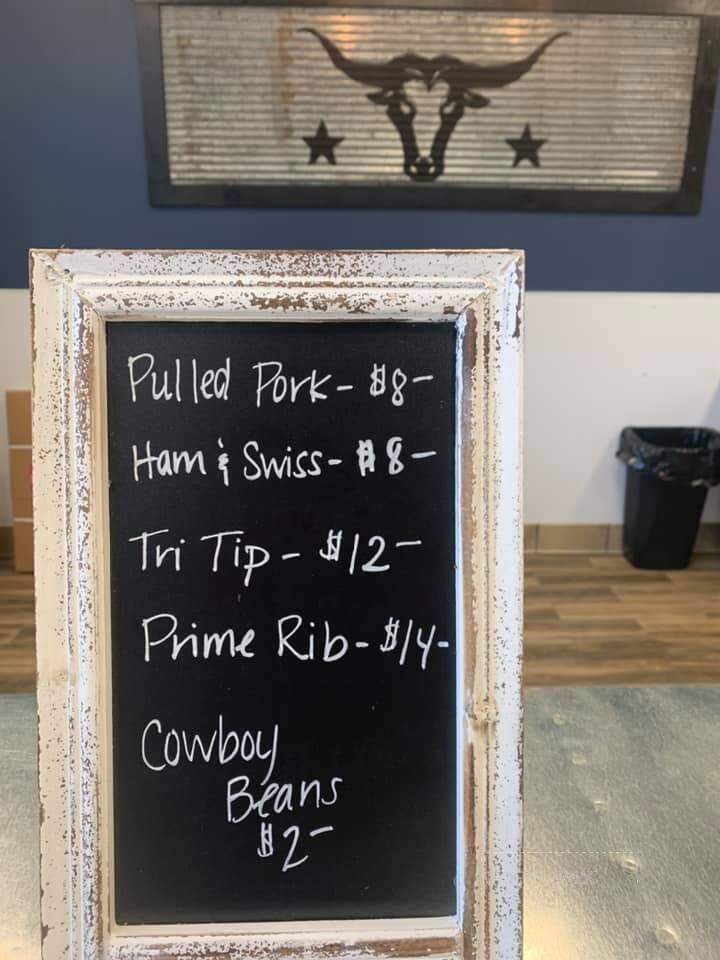 Pulled Pork - $8-
Ham & Swiss - $8-
Tri Tip - $12-
Prime Rib - $14-
Cowboy
Beans
$2-